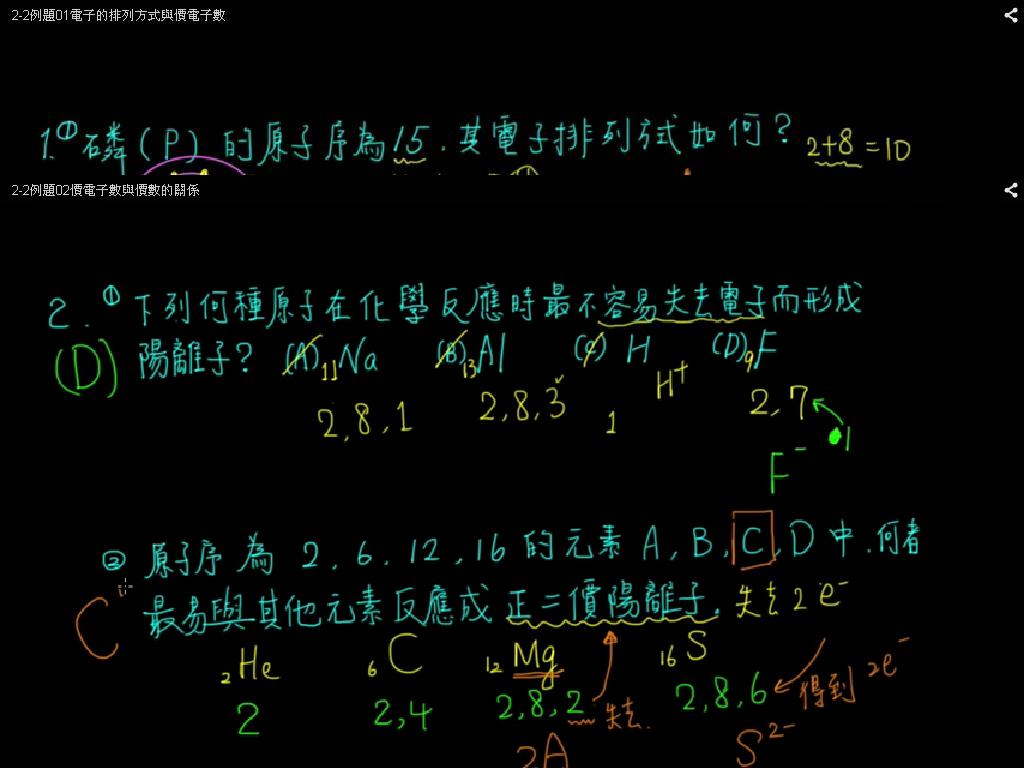 2-2例題01電子的排列方式與價電子數
1.① 磷(P)的原子序為15.其電子排列方式如何? 2+8=10
2-2例題02價電子數與價數的關係
2.① 下列何種原子在化學反應時最不容易失去電子而形成
(D) 陽離子? (A)₁₁Na (B)₁₃Al (C) H (D)₉F
H⁺
2,8,1 2,8,3 1 2,7 1
F⁻
② 原子序為 2,6,12,16的元素 A,B,C,D中.何者
C 最易與其他元素反應成正二價陽離子. 失去2e⁻
₂He ₆C ₁₂Mg ₁₆S
2 2,4 2,8,2 失去. 2,8,6 得到 2e⁻
2A S²⁻